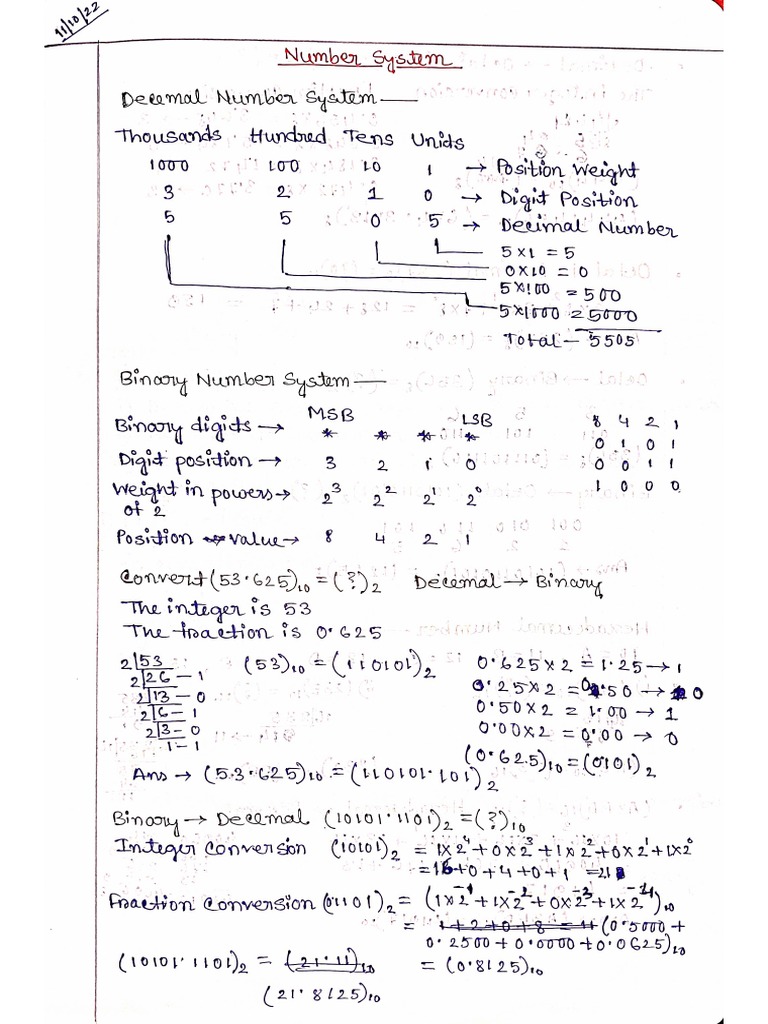 11/10/22
Number System
Decemal Number System —
Thousands Hundred Tens Unids
1000 100 10 1 → Position Weight
3 2 1 0 → Digit Position
5 5 0 5 → Decimal Number
5×1 = 5
0×10 = 0
5×100 = 500
5×1000 = 5000
Total — 5505
Binary Number System —
MSB LSB 8 4 2 1
Binary digits → * * * * 0 1 0 1
Digit position → 3 2 1 0 0 0 1 1
Weight in powers → 2³ 2² 2¹ 2⁰ 1 0 0 0
of 2
Position value → 8 4 2 1
Convert (53.625)₁₀ = (?)₂ Decemal → Binary
The integer is 53
The fraction is 0.625
2|53 (53)₁₀ = (110101)₂ 0.625×2 = 1.25 → 1
2|26 – 1 0.25×2 = 0.50 → 0
2|13 – 0 0.50×2 = 1.00 → 1
2|6 – 1 0.00×2 = 0.00 → 0
2|3 – 0
1 – 1 (0.625)₁₀ = (0101)₂
Ans → (53.625)₁₀ = (110101.101)₂
Binary → Decemal (10101.1101)₂ = (?)₁₀
Integer Conversion (10101)₂ = 1×2⁴+0×2³+1×2²+0×2¹+1×2⁰
= 16+0+4+0+1 = 21
Fraction Conversion (01101)₂ = (1×2⁻¹+1×2⁻²+0×2⁻³+1×2⁻⁴)₁₀
= 1+2+0+8 = 11 (0.5000+
0.2500+0.0000+0.0625)₁₀
(10101.1101)₂ = (21.11)₁₀ = (0.8125)₁₀
(21.8125)₁₀